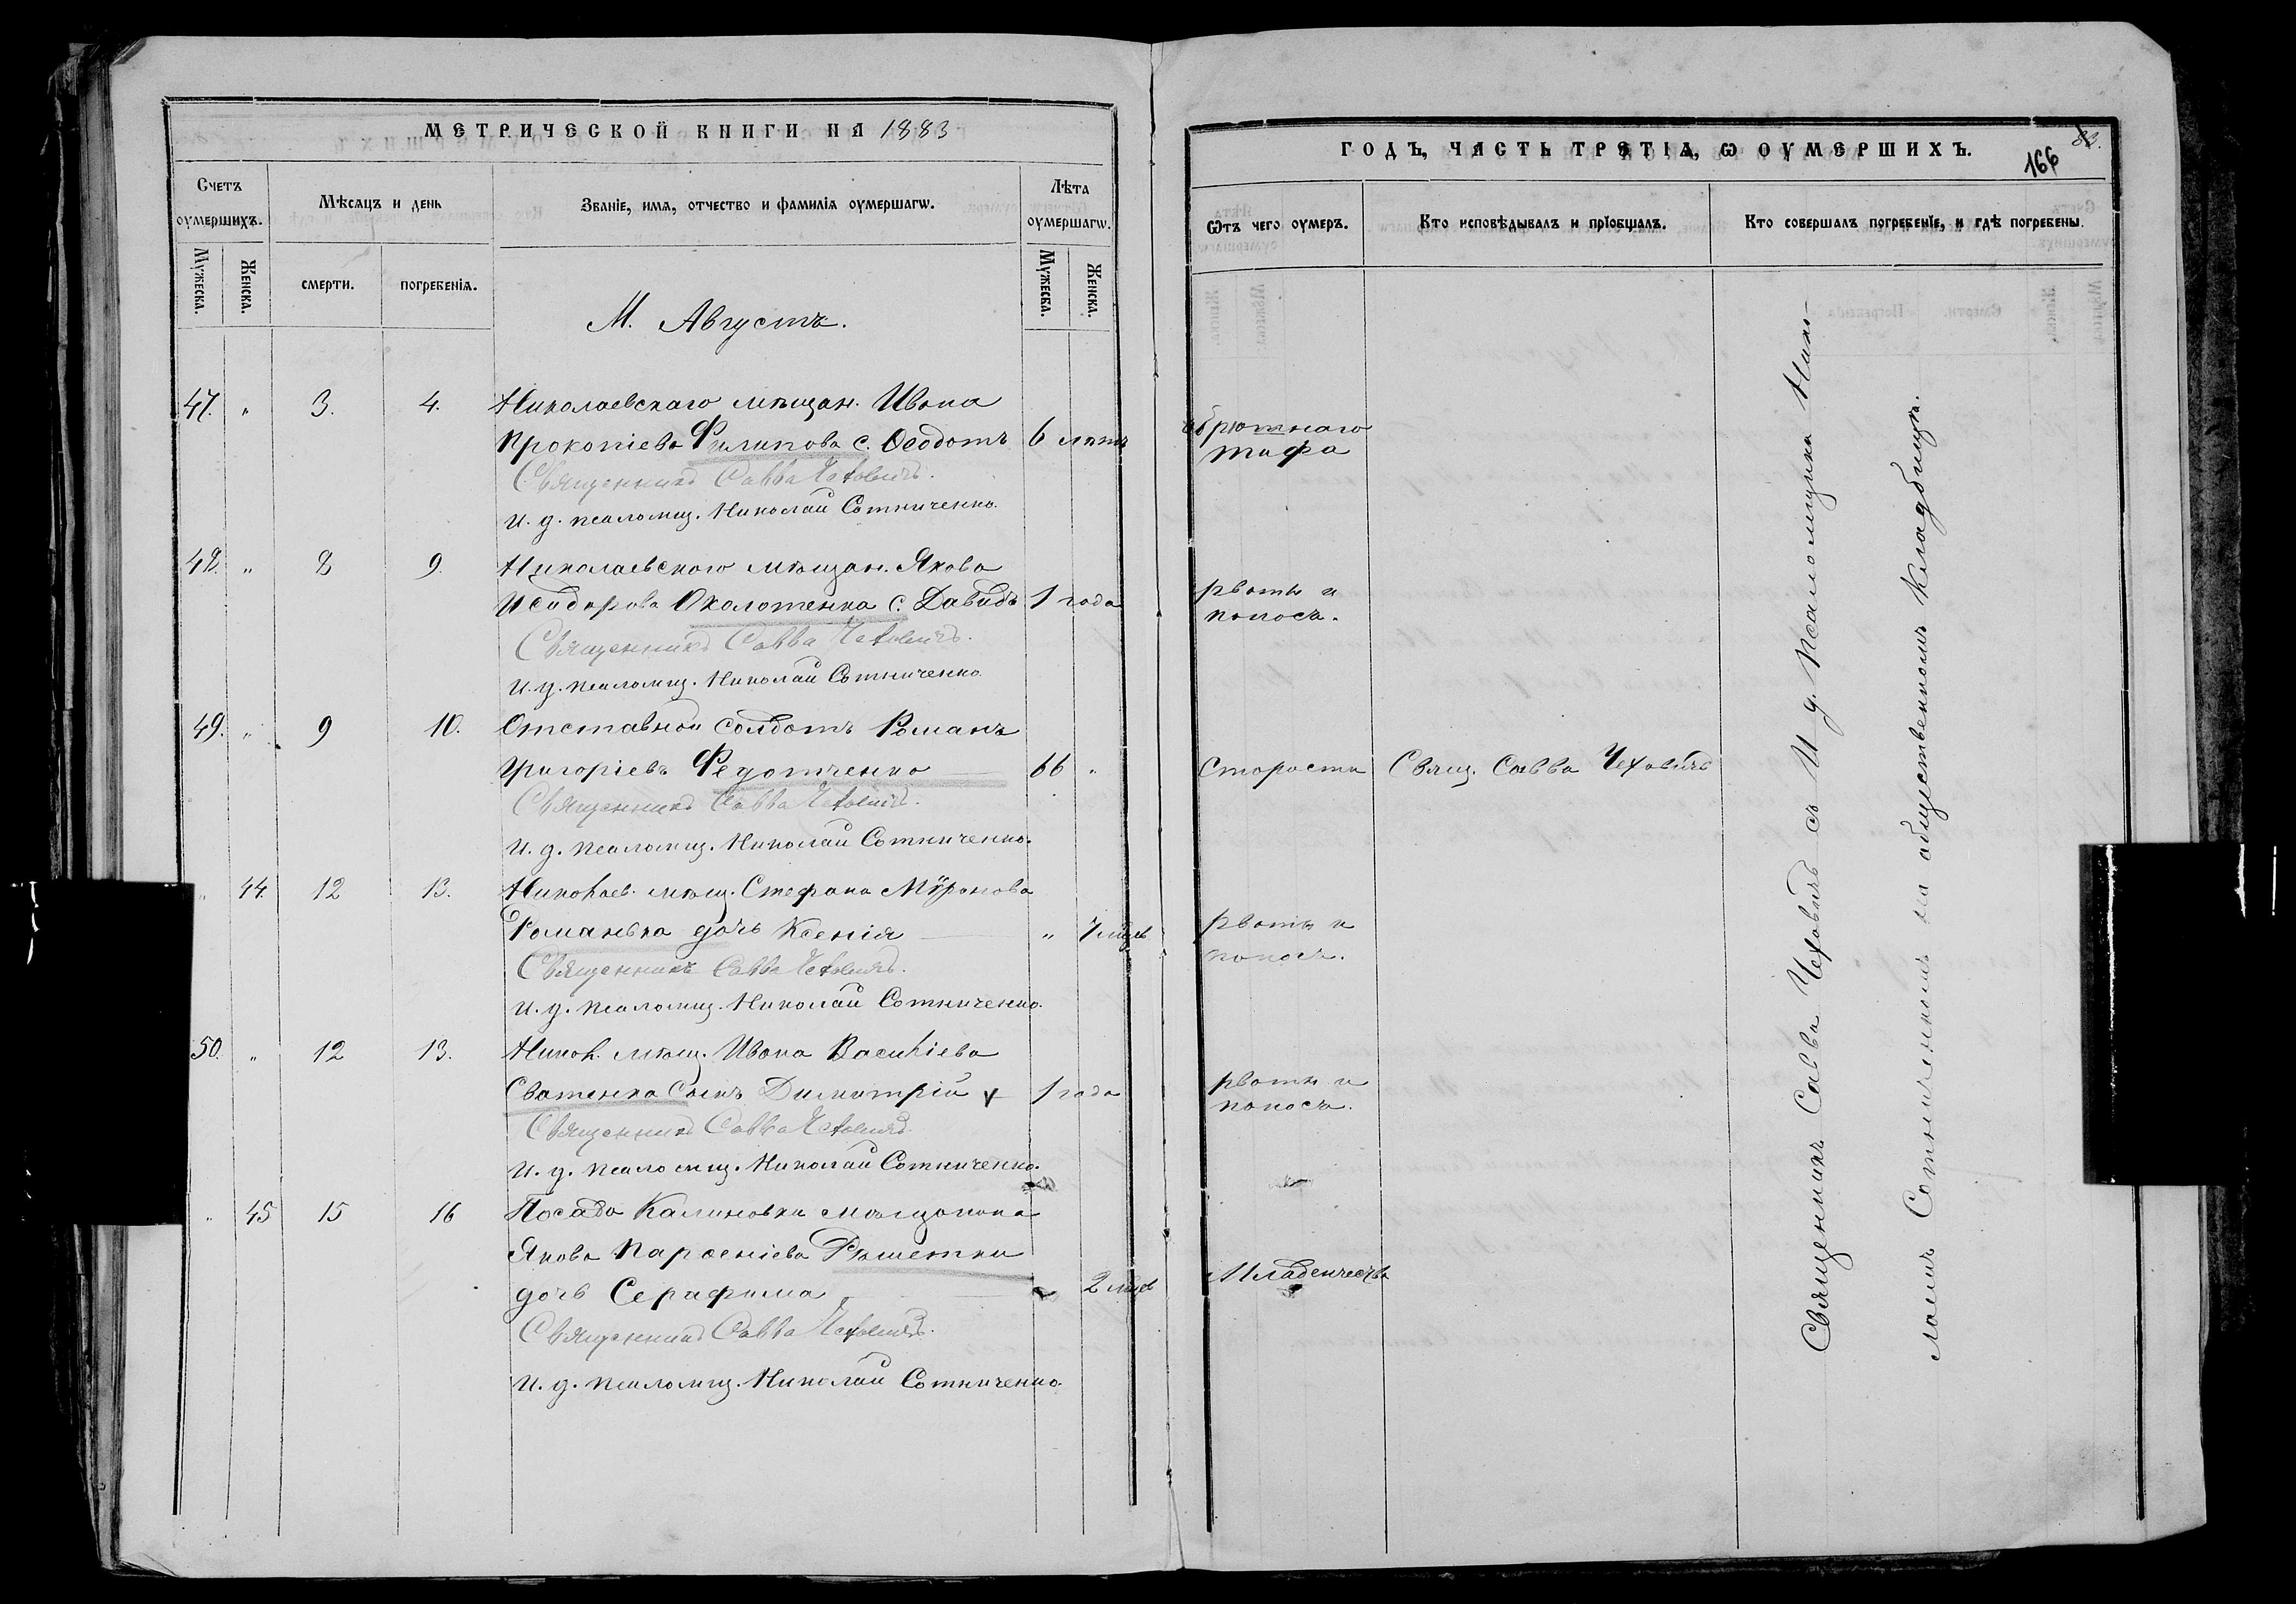 МЕТРИЧЕСКОЙ КНИГИ НА 1883
Счетъ оумершихъ.
Мѣсяцъ и день
Званіе, имя, отчество и фамилія оумершагѡ.
Лѣта оумершагѡ.
Мужеска.
Женска.
смерти.
погребенія.
Мужеска.
Женска.
М. Августъ.
47. " 3. 4. Николаевскаго мѣщан. Ивана
Прокопіева Филипова с. Ѳеодотъ 6 лѣтъ
Священникъ Савва Чеховичъ.
И. д. псаломщ. Николай Сотниченко.
48. " 8 9. Николаевского мѣщан. Якова
Исидорова Околотенка с. Давидъ 1 года
Священникъ Савва Чеховичъ.
И. д. псаломщ. Николай Сотниченко
49. " 9 10. Отставной солдатъ Романъ
Григоріевъ Федотченко 66 "
Священникъ Савва Чеховичъ.
И. д. псаломщ. Николай Сотниченко.
" 44. 12 13. Николаев. мѣщ. Стефана Мѵронова
Романька дочь Ксенія " 7 мѣц
Священникъ Савва Чеховичъ.
И. д. псаломщ. Николай Сотниченко.
50. " 12 13. Никол. мѣщ. Ивана Василіева
Сватенка сынъ Димитрій 1 года
Священникъ Савва Чеховичъ.
И. д. псаломщ. Николай Сотниченко.
" 45 15 16 Посада Калиновки мѣщанина
Якова Парѳеніева Рѣшетки
дочь Серафима 2 мѣц
Священникъ Савва Чеховичъ.
И. д. псаломщ. Николай Сотниченко.
ГОДЪ, ЧАСТЬ ТРЕТІЯ, Ѡ ОУМЕРШИХЪ.
83.
166
Ѿтъ чего оумеръ.
Кто исповѣдывалъ и прїобщалъ.
Кто совершалъ погребенїе, и гдѣ погребены.
брюшнаго
тифа
рвоты и
поноса.
Старости Свящ. Савва Чеховичъ
рвоты и
поноса.
рвоты и
поноса.
Младенчества
Священникъ Савва Чеховичъ съ И д. Псаломщика Нико-
лаемъ Сотниченкомъ на общественномъ кладбищѣ.